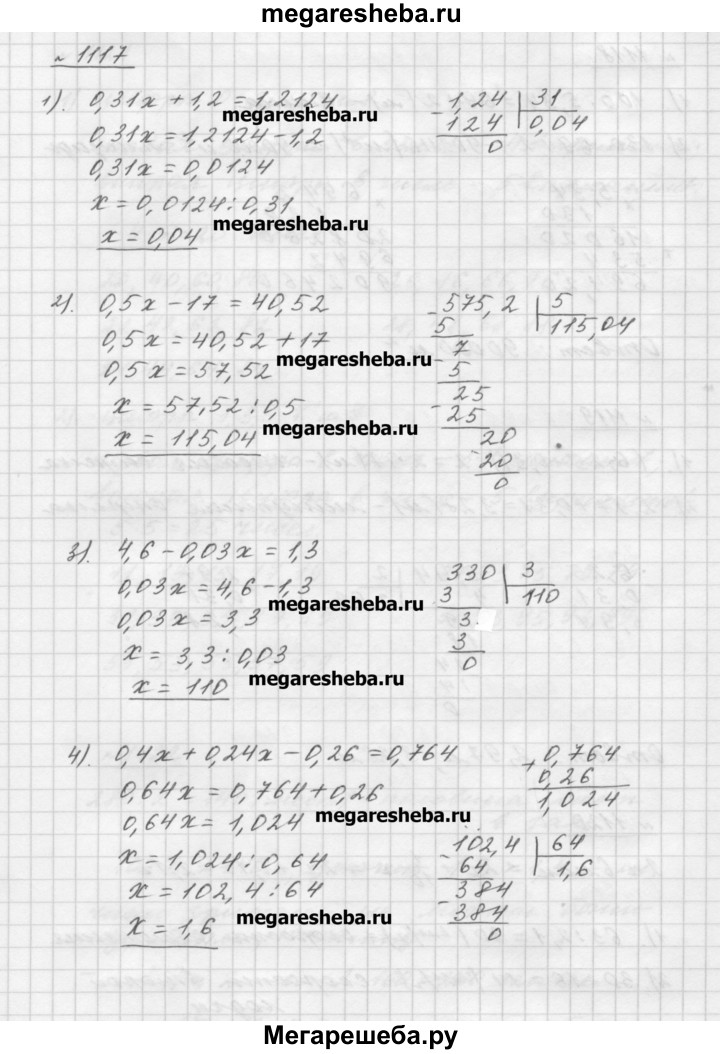 megaresheba.ru
№ 1117
1). 0,31x + 1,2 = 1,2124
0,31x = 1,2124 - 1,2
0,31x = 0,0124
x = 0,0124 : 0,31
x = 0,04
1,24 | 31
- 124 | 0,04
0
megaresheba.ru
megaresheba.ru
2). 0,5x - 17 = 40,52
0,5x = 40,52 + 17
0,5x = 57,52
x = 57,52 : 0,5
x = 115,04
- 575,2 | 5
5 | 115,04
7
- 5
25
- 25
20
- 20
0
megaresheba.ru
megaresheba.ru
3). 4,6 - 0,03x = 1,3
0,03x = 4,6 - 1,3
0,03x = 3,3
x = 3,3 : 0,03
x = 110
330 | 3
3 | 110
3
3
0
megaresheba.ru
megaresheba.ru
4). 0,4x + 0,24x - 0,26 = 0,764
0,64x = 0,764 + 0,26
0,64x = 1,024
x = 1,024 : 0,64
x = 102,4 : 64
x = 1,6
+ 0,764
0,26
1,024
- 102,4 | 64
64 | 1,6
384
- 384
0
megaresheba.ru
megaresheba.ru
Мегарешеба.ру